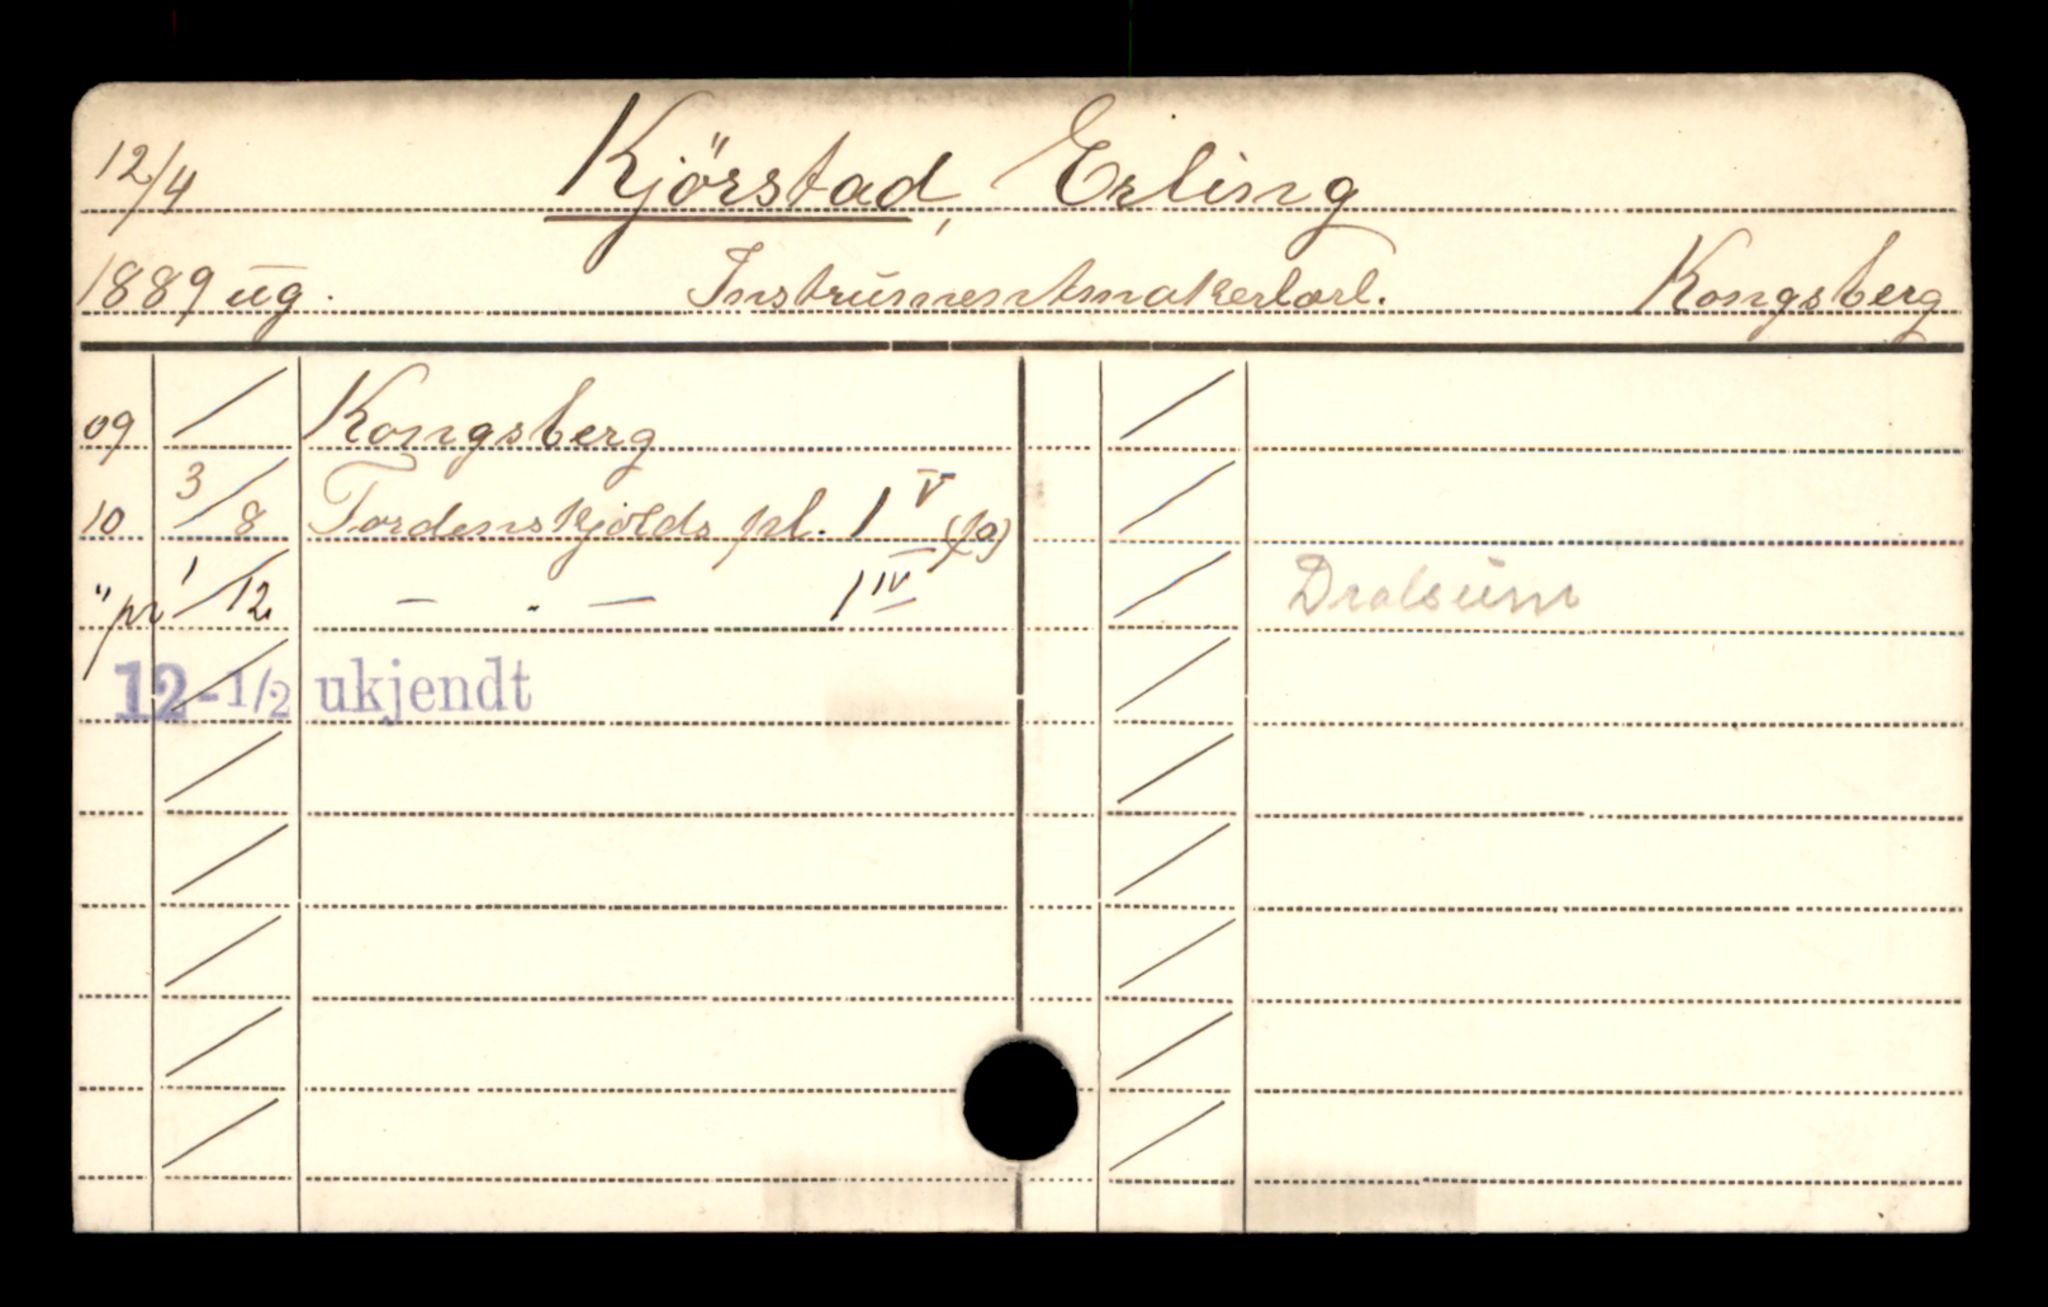 12/4 Kjörstad, Erling
1889 ug. Instrumentmakerlærl. Kongsberg
09 / Kongsberg
10 3/8 Tordenskjolds pl. 1 V
" pr 1/12 — " — 1 IV
12-1/2 ukjendt